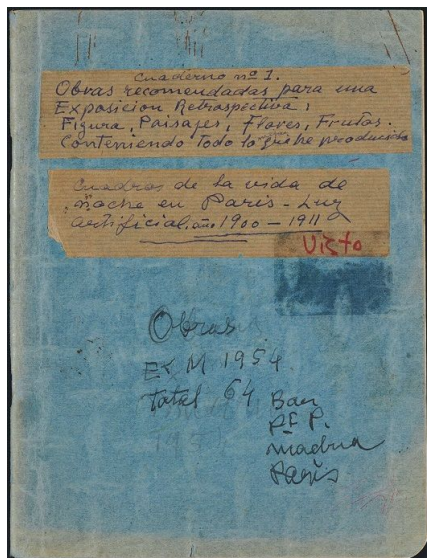 Cuaderno nº 1.
Obras recomendadas para una
Exposicion Retrospectiva,
Figura, Paisajes, Flores, Frutos.
Conteniendo todo lo que he producido
Cuadros de la vida de
noche en Paris - Luz
artificial, año 1900 - 1911
Visto
Obras
M 1954
total 64
P.
Madrid
Paris